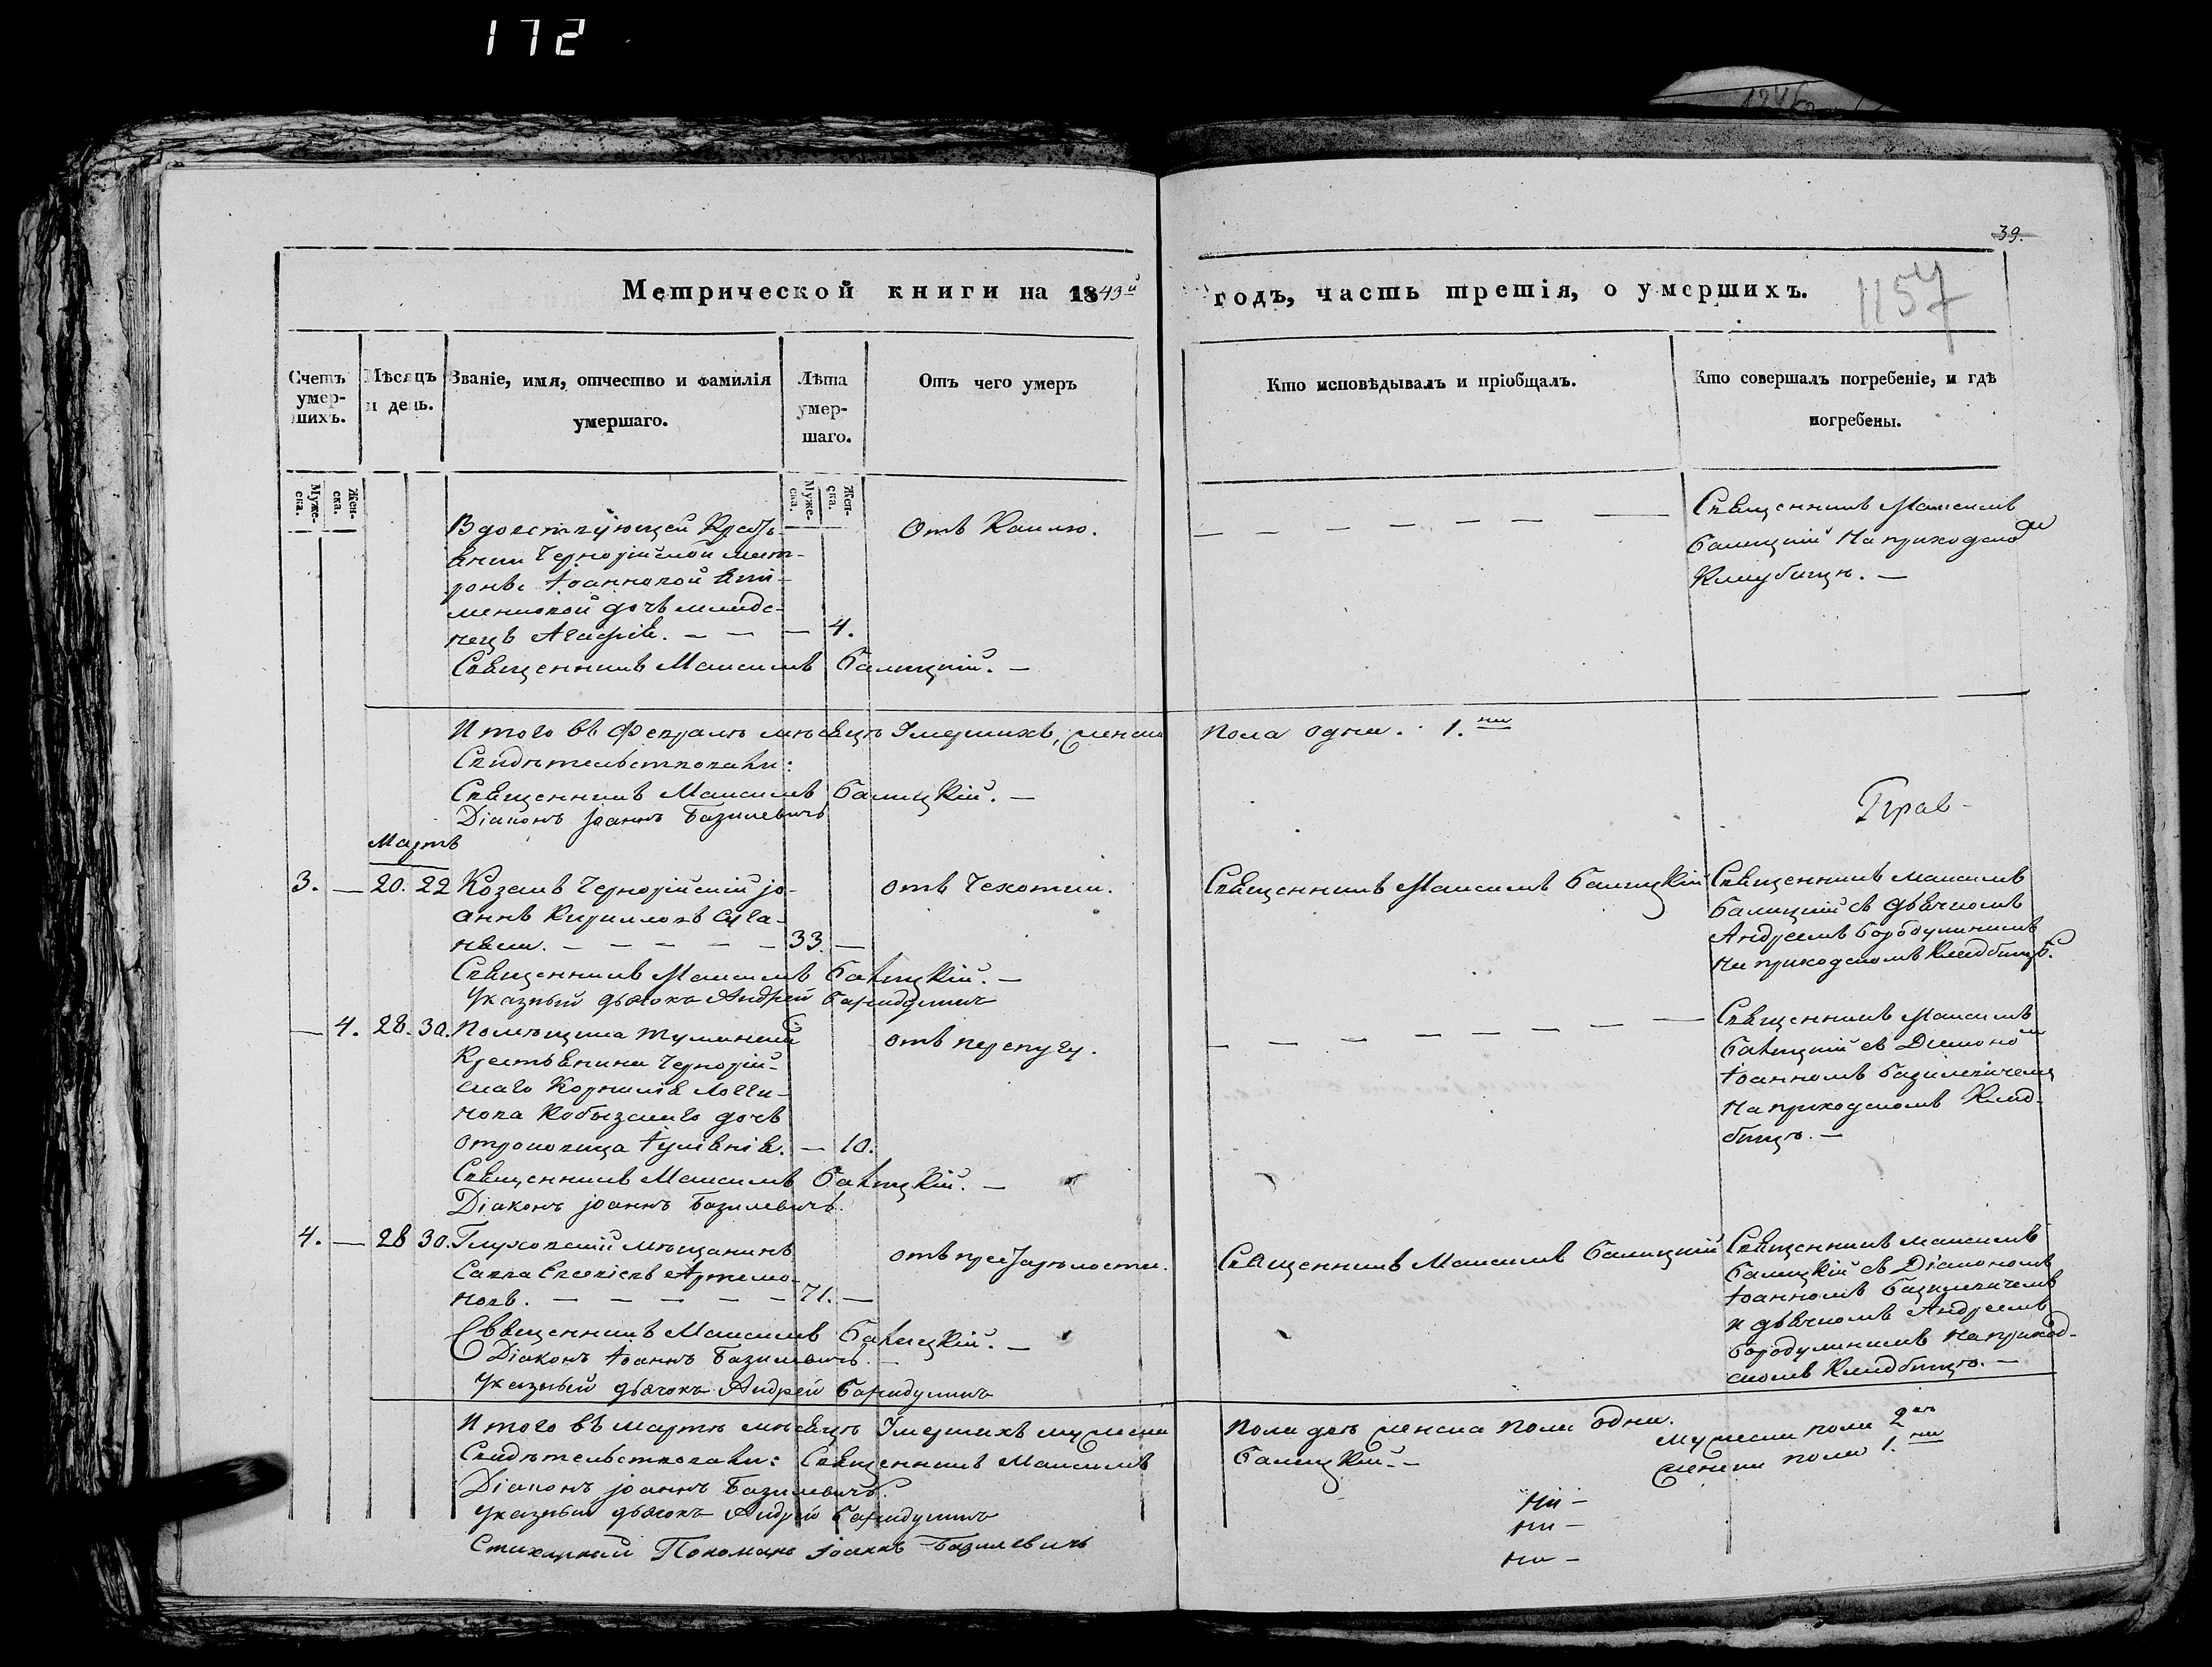 172
39.
1157
Метрической книги на 1843й годъ, часть третія, о умершихъ.
Счетъ умер-шихъ.
Мѣсяцъ и день.
Званіе, имя, отчество и фамилія умершаго.
Лѣта умер-шаго.
Отъ чего умеръ
Кто исповѣдывалъ и пріобщалъ.
Кто совершалъ погребеніе, и гдѣ погребены.
Муже-ска.
Жен-ска.
Муже-ска.
Жен-ска.
Вдовствующей Кресть-
янки Чернорійской мат-
роны Іоанновой
дочь младе-
нецъ Агафія. — — — 4.
Отъ Кашлю.
Священникъ Максимъ
Балицкій на приходском
Кладбищѣ. —
Священникъ Максимъ Балицкій. —
Итого въ Февралѣ мѣсяцѣ Умершихъ, женска пола одна. 1.на
Свидѣтельствовали:
Священникъ Максимъ Балицкій. —
Діаконъ Іоаннъ Базилевичъ
Мартъ
3. — 20. 22 Козакъ Чернорійскій Іо-
аннъ Кирилловъ
33. —
отъ Чехотки.
Священникъ Максимъ Балицкій
Священникъ Максимъ
Балицкій съ дьячкомъ
Андреемъ Бородулинымъ
на приходскомъ Кладбищѣ.
Священникъ Максимъ Балицкій. —
Указный дьячокъ Андрей Бародулинъ
— 4. 28. 30. Помѣщика Туманскаго
Крестьянина Чернорій-
скаго Корнилія Логги-
нова дочь
отроковица Іуліанія. — 10.
отъ перепугу.
Священникъ Максимъ
Балицкій съ Діаконом
Іоанномъ Базилевичемъ
На приходскомъ Клад-
бищѣ. —
Священникъ Максимъ Балицкій. —
Діаконъ Іоаннъ Базилевичъ.
4. — 28 30. Глуховскій мѣщанинъ
Савва Евсевіевъ Артемо-
новъ. — — — — — 71. —
отъ престарѣлости.
Священникъ Максимъ Балицкій
Священникъ Максимъ
Балицкій съ Діакономъ
Іоанномъ Базилевичемъ
и дьячкомъ Андреемъ
Бородулинымъ на приход-
скомъ Кладбищѣ. —
Священникъ Максимъ Балицкій. —
Діаконъ Іоаннъ Базилевичъ. —
Указный дьячокъ Андрей Бародулинъ
Итого въ Мартѣ мѣсяцѣ Умершихъ мужеска пола двѣ женска пола одна.
мужеска пола 2
женска пола 1.на
Свидѣтельствовали: Священникъ Максимъ Балицкій. —
Діаконъ Іоаннъ Базилевичъ.
Указный дьячокъ Андрей Бародулинъ
Стихарный Пономарь Іоаннъ Базилевичъ